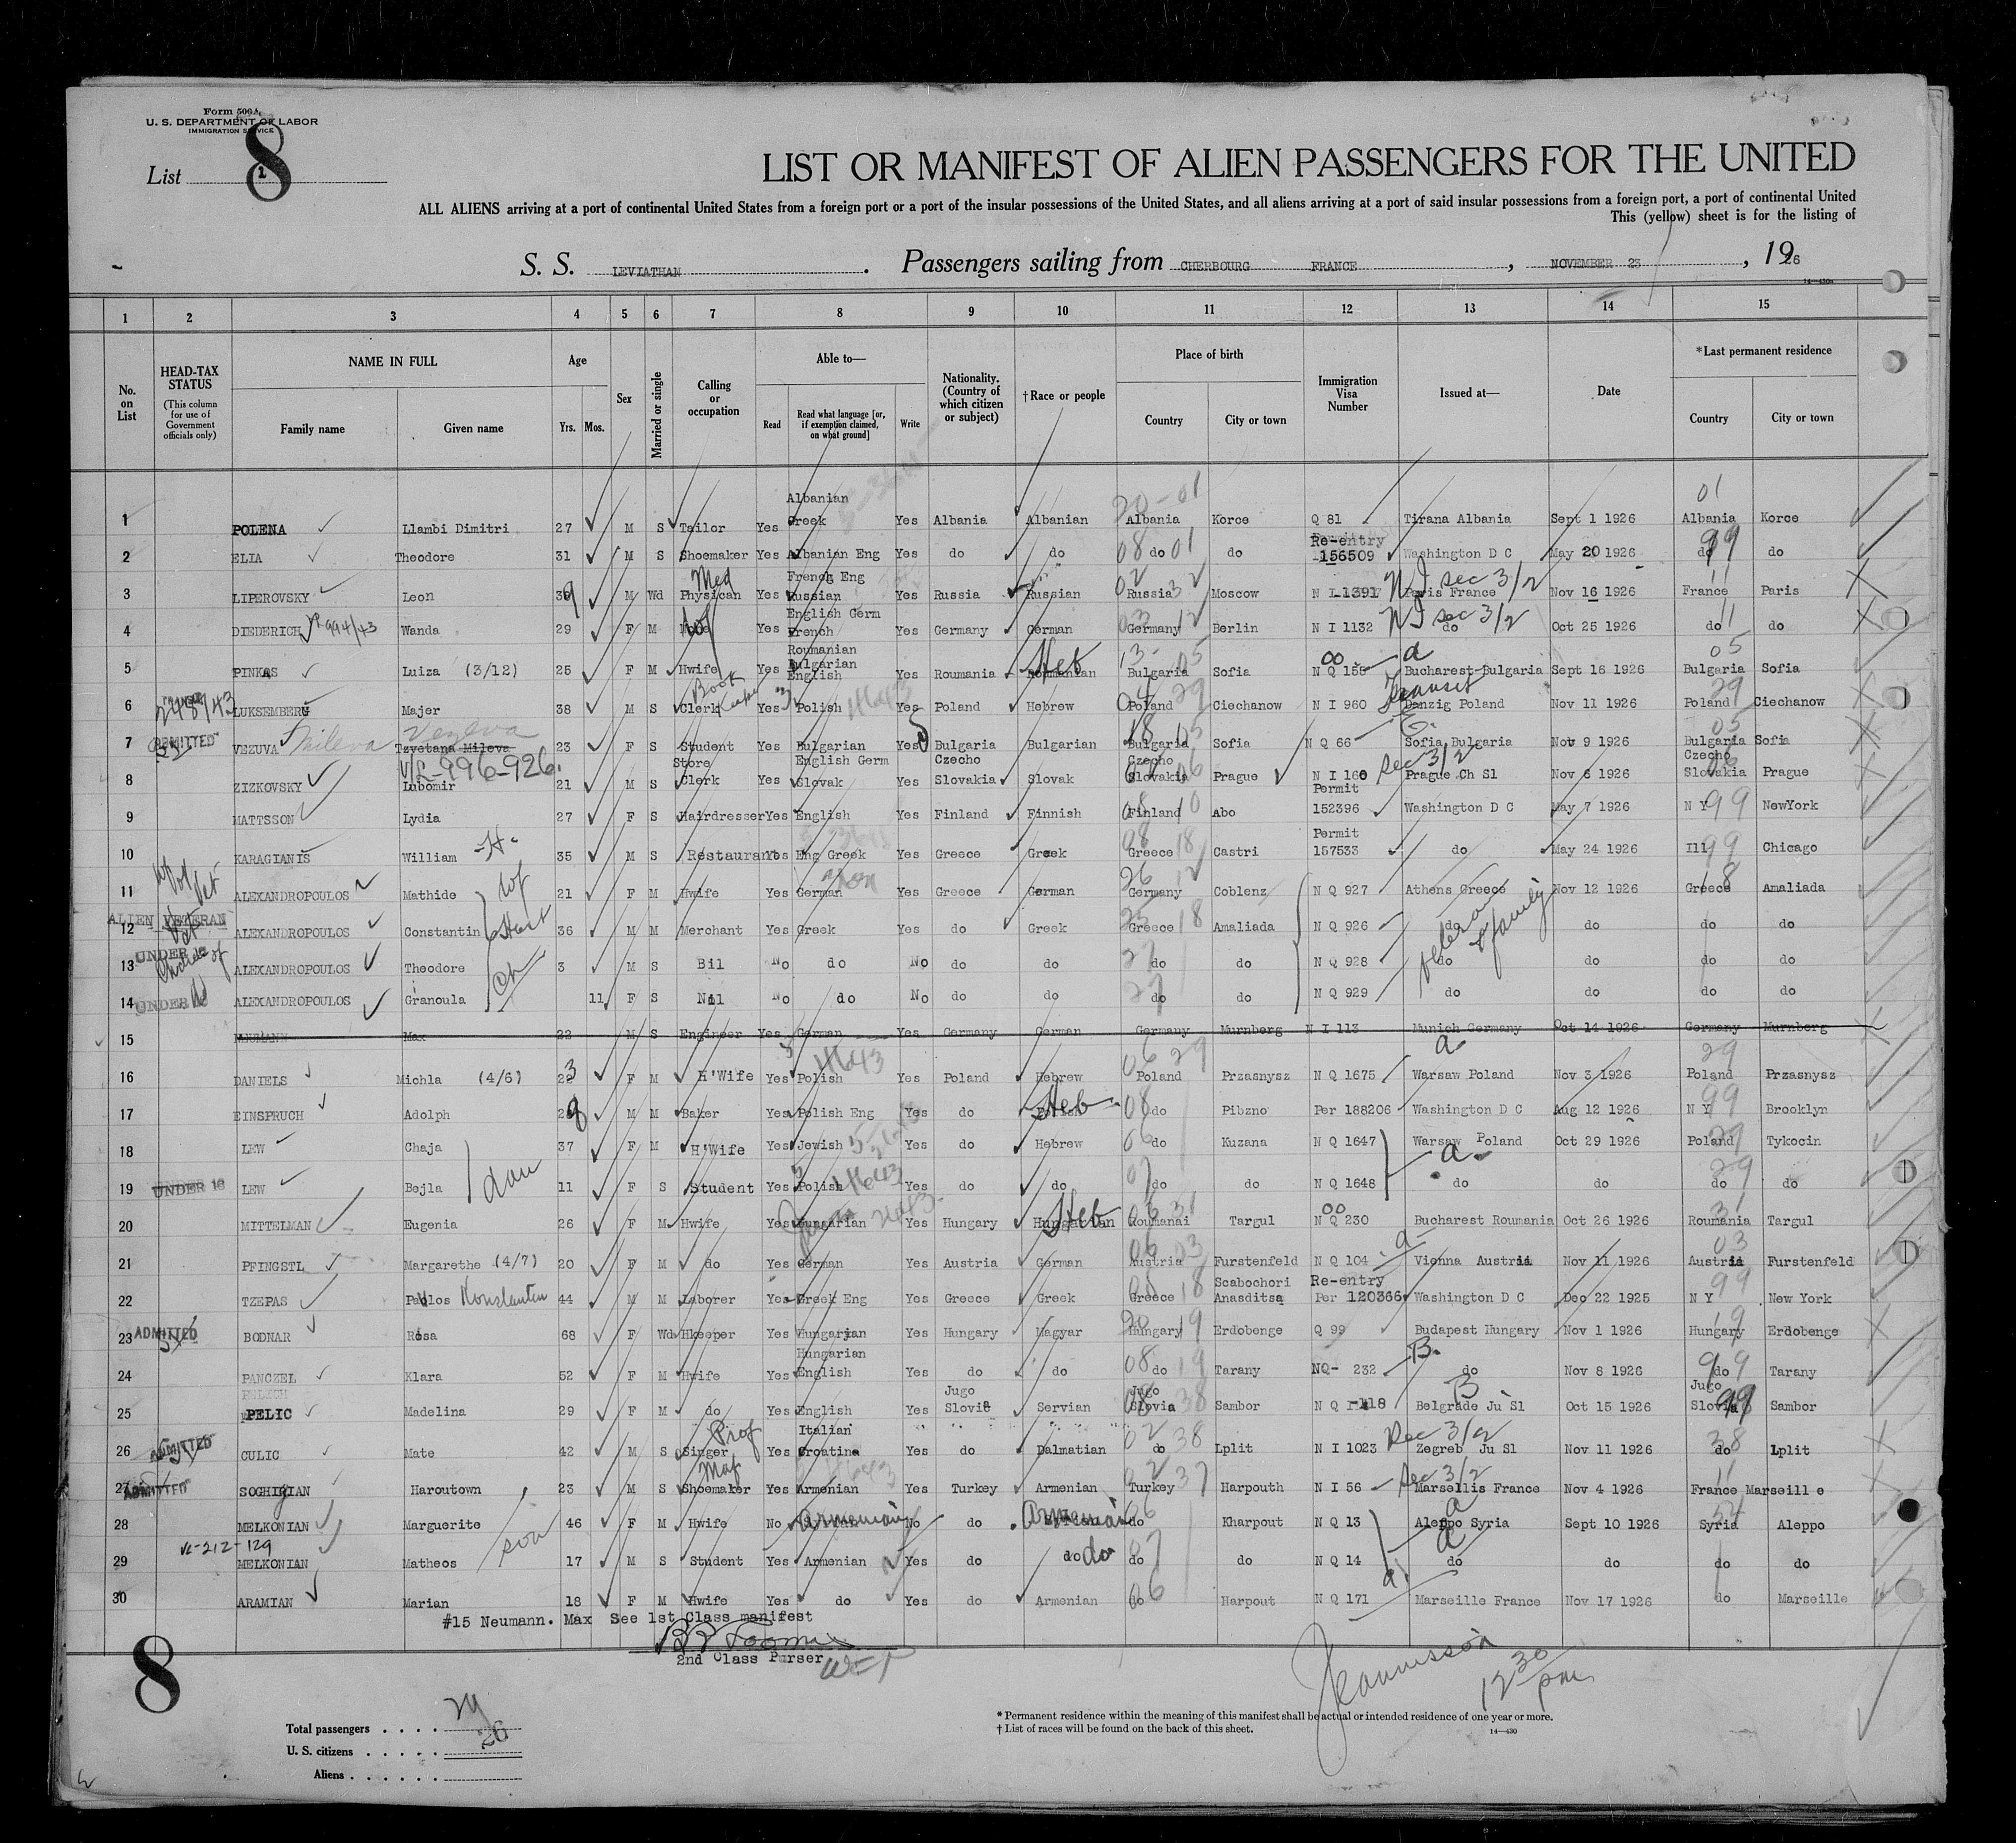 Form 500A
U. S. DEPARTMENT OF LABOR
IMMIGRATION SERVICE
List 8
LIST OR MANIFEST OF ALIEN PASSENGERS FOR THE UNITED
ALL ALIENS arriving at a port of continental United States from a foreign port or a port of the insular possessions of the United States, and all aliens arriving at a port of said insular possessions from a foreign port, a port of continental United
This (yellow) sheet is for the listing of
S. S. LEVIATHAN. Passengers sailing from CHERBOURG FRANCE, NOVEMBER 23, 1926
14—430a
1 2 3 4 5 6 7 8 9 10 11 12 13 14 15
No. on List
HEAD-TAX STATUS (This column for use of Government officials only)
NAME IN FULL Family name Given name
Age Yrs. Mos.
Sex
Married or single
Calling or occupation
Able to— Read Read what language [or, if exemption claimed, on what ground] Write
Nationality. (Country of which citizen or subject)
†Race or people
Place of birth Country City or town
Immigration Visa Number
Issued at—
Date
*Last permanent residence Country City or town
1 POLENA Llambi Dimitri 27 M S Tailor Yes Albanian Greek Yes Albania Albanian Albania 20-01 Korce Q 81 Tirana Albania Sept 1 1926 Albania 01 Korce
2 ELIA Theodore 31 M S Shoemaker Yes Albanian Eng Yes do do do 08 01 do Re-entry 156509 Washington D C May 20 1926 do 99 do
3 LIPEROVSKY Leon 39 M Wd Med Physican Yes French Eng Russian Yes Russia Russian Russia 02 32 Moscow N I 1391 NI sec 3/2 Paris France Nov 16 1926 France 11 Paris
4 DIEDERICH 994/43 Wanda 29 F M Yes English Germ French Yes Germany German Germany 03 12 Berlin N I 1132 NI sec 3/2 do Oct 25 1926 do 11 do
5 PINKAS Luiza (3/12) 25 F M Hwife Yes Roumanian Bulgarian English Yes Roumania Roumanian Heb Bulgaria 13-05 Sofia N Q 155 00 a Bucharest Bulgaria Sept 16 1926 Bulgaria 05 Sofia
6 LUKSEMBERG Majer 38 M S Book Keeper Clerk Yes Polish Yes Poland Hebrew Poland 29 Ciechanow N I 960 Transit Danzig Poland Nov 11 1926 Poland 29 Ciechanow
7 ADMITTED VEZUVA Mileva Tzvetana Mileva Vezeva 23 F S Student Yes Bulgarian Yes Bulgaria Bulgarian Bulgaria 18 05 Sofia N Q 66 Sofia Bulgaria Nov 9 1926 Bulgaria 05 Sofia
8 ZIZKOVSKY V/L-996-926. Lubomir 21 M S Store Clerk Yes English Germ Slovak Yes Czecho Slovakia Slovak Czecho Slovakia 06 Prague N I 160 Sec 3/2 Prague Ch Sl Nov 6 1926 Czecho Slovakia 06 Prague
9 MATTSSON Lydia 27 F S Hairdresser Yes English Yes Finland Finnish Finland 08 10 Abo Permit 152396 Washington D C May 7 1926 N Y 99 NewYork
10 KARAGIANIS William -H- 35 M S Restaurant Yes Eng Greek Yes Greece Greek Greece 08 18 Castri Permit 157533 do May 24 1926 Ill 99 Chicago
11 ALEXANDROPOULOS Mathide wf 21 F M Hwife Yes German Yes Greece German Germany 26 12 Coblenz N Q 927 Athens Greece Nov 12 1926 Greece 18 Amaliada
12 ALIEN VETERAN ALEXANDROPOULOS Constantin 36 M M Merchant Yes Greek Yes do Greek Greece 25 18 Amaliada N Q 926 do do do do
13 UNDER 16 ALEXANDROPOULOS Theodore Ch 3 M S Bil No do No do do do 27 do N Q 928 do do do do
14 UNDER 16 ALEXANDROPOULOS Granoula 11 F S Nil No do No do do do 27 do N Q 929 do do do do
veteran & family
15 Max 22 M S Engineer Yes German Yes Germany German Germany Murnberg N I 113 Munich Germany Oct 14 1926 Germany Murnberg
16 DANIELS Michla (4/6) 23 F M H'Wife Yes Polish Yes Poland Hebrew Poland 06 29 Przasnysz N Q 1675 a Warsaw Poland Nov 3 1926 Poland 29 Przasnysz
17 EINSPRUCH Adolph 28 M M Baker Yes Polish Eng Yes do Heb do 08 Pibzno Per 188206 Washington D C Aug 12 1926 N Y 99 Brooklyn
18 LEW Chaja 37 F M H'Wife Yes Jewish Yes do Hebrew do 06 Kuzana N Q 1647 Warsaw Poland Oct 29 1926 Poland 29 Tykocin
19 UNDER 16 LEW Bejla dau 11 F S Student Yes Polish Yes do do 07 do N Q 1648 a do do do 29 do
20 MITTELMAN Eugenia 26 F M Hwife Yes Hungarian Yes Hungary Hungarian Heb Roumanai 06 31 Targul N Q 230 00 Bucharest Roumania Oct 26 1926 Roumania 31 Targul
21 PFINGSTL Margarethe (4/7) 20 F M do Yes German Yes Austria German Austria 06 03 Furstenfeld N Q 104 a Vienna Austria Nov 11 1926 Austria 03 Furstenfeld
22 TZEPAS Pavlos Konstantin 44 M M Laborer Yes Greek Eng Yes Greece Greek Greece 08 18 Scabochori Anasditsa Re-entry Per 120366 Washington D C Dec 22 1925 N Y 99 New York
23 ADMITTED BODNAR Rosa 68 F Wd Hkeeper Yes Hungarian Yes Hungary Magyar Hungary 19 Erdobenge Q 99 Budapest Hungary Nov 1 1926 Hungary 19 Erdobenge
24 PANCZEL Klara 52 F M Hwife Yes Hungarian English Yes do do do 08 19 Tarany NQ- 232 B. do Nov 8 1926 do 99 Tarany
25 PELIC Madelina 29 F M do Yes English Yes Jugo Slovia Servian Jugo Slovia 08 38 Sambor N Q 118 B Belgrade Ju Sl Oct 15 1926 Jugo Slovia 99 Sambor
26 ADMITTED CULIC Mate 42 M S Prof Singer Yes Italian Croatina Yes do Dalmatian do 02 38 Lplit N I 1023 Sec 3/2 Zegreb Ju Sl Nov 11 1926 do 38 Lplit
27 ADMITTED SOGHIGIAN Haroutown 23 M S Maf Shoemaker Yes Armenian Yes Turkey Armenian Turkey 02 37 Harpouth N I 56 Sec 3/2 Marsellis France Nov 4 1926 France 11 Marseill e
28 MELKONIAN Marguerite 46 F M Hwife No Armenian No do Armenian do 06 Kharpout N Q 13 a Aleppo Syria Sept 10 1926 Syria 54 Aleppo
29 V-212-129 MELKONIAN Matheos son 17 M S Student Yes Armenian Yes do do do do 07 do N Q 14 a do do do do
30 ARAMIAN Marian 18 F M Hwife Yes do Yes do Armenian do 06 Harpout N Q 171 a Marseille France Nov 17 1926 do Marseille
#15 Neumann. Max See 1st Class manifest
2nd Class Purser
8
12 30 pm
Total passengers 29
26
U. S. citizens
Aliens
* Permanent residence within the meaning of this manifest shall be actual or intended residence of one year or more.
† List of races will be found on the back of this sheet.
14—430